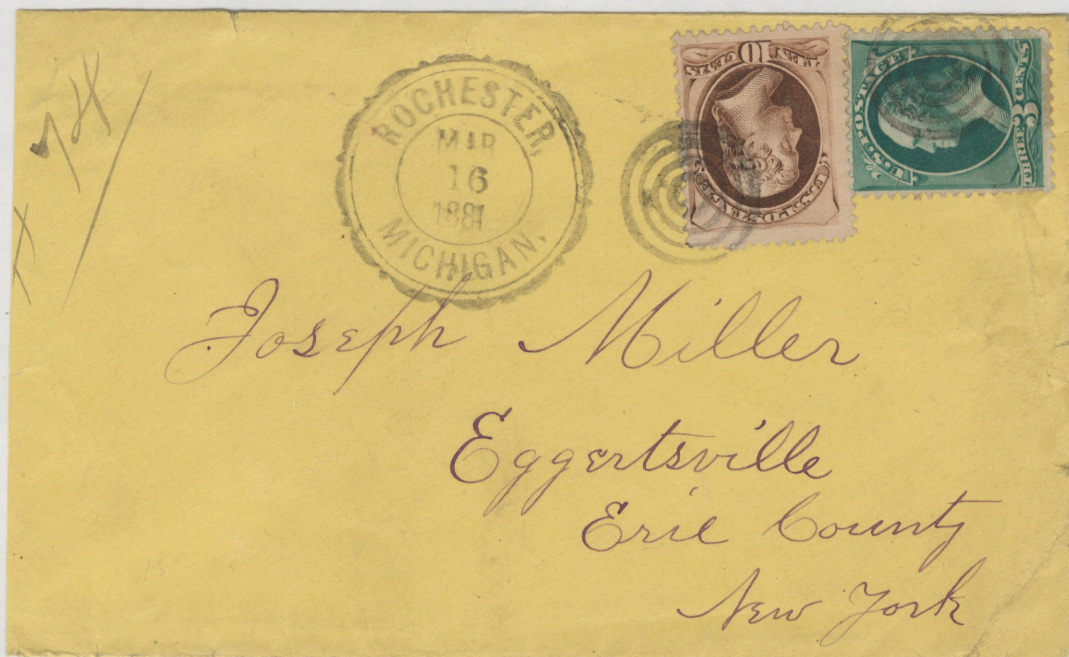 74
ROCHESTER,
MAR
16
1881
MICHIGAN.
10
U.S. POSTAGE
3
CENTS
Joseph Miller
Eggertsville
Erie County
New York